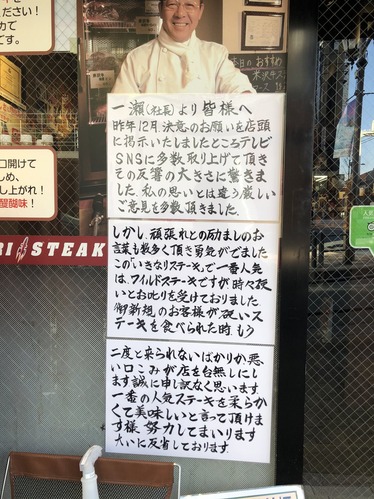 ください!
です。
本日のおすすめ
米沢牛ス
一瀬(社長)より皆様へ
昨年12月決意のお願いを店頭
に掲示いたしましたところテレビ
SNSに多数取り上げて頂き
その反響の大きさに驚きま
した。私の思いとは違う厳しい
ご意見を多数頂きました。
口開けて
しめ、
し上がれ!
醍醐味!
RI STEAK
しかし、頑張れとの励ましのお
言葉も数多く頂き勇気がでました
この「いきなりステーキ」で一番人気
は、ワイルドステーキですが時々硬
いとお叱りを受けておりました
御新規のお客様が硬いス
テーキを食べられた時もう
二度と来られないばかりか悪
い口こみが店を台無しにし
ます誠に申し訳なく思います。
一番の人気ステーキを柔らか
くて美味しいと言って頂けま
す様、努力してまいります
大いに反省しております。